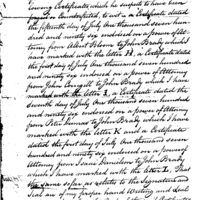 lowing Certificates which he suspects to have been
forged or Counterfeited, to wit a Certificate dated
the fifteenth day of July One thousand seven hun-
dred and ninety six endorsed on a power of Attor-
ney from Albert to John Brady which I
have marked with the letter H, a Certificate dated
the first day of July One thousand seven hundred
and ninety six endorsed on a power of Attorney
from John to John Brady which I have
marked with the letter I, a Certificate dated the
seventh day of July One thousand seven hundred
and ninety six endorsed on a power of Attorney
from Peter to John Brady which I have
marked with the letter K and a Certificate
dated the first day of July One thousand
seven hundred and ninety six endorsed on a power of
Attorney from Isaac to John Brady
which I have marked with the letter L. That
the same so far as relates to the Signature and
Seal are of my proper hand Writing and